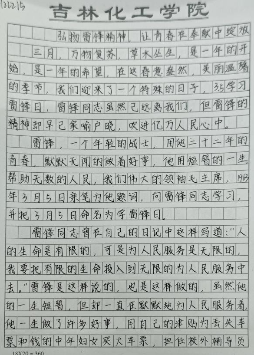 吉林化工学院
弘扬雷锋精神，让青春在奉献中绽放
三月，万物复苏，草木丛生，是一年的开
始，是一年的希望，在这春意盎然、美丽温暖
的季节，我们迎来了一个特殊的日子，3.5学习
雷锋日，雷锋同志虽然已远离我们，但雷锋的
精神却早已家喻户晓，吹进亿万人民心中。
雷锋，一个年轻的战士，用他二十二年的
青春，默默无闻的做着好事，他用短暂的一生
帮助无数的人民，我们伟大的领袖毛主席，1963
年3月5日亲笔为他题词，向雷锋同志学习，
并把3月5日命名为学雷锋日。
雷锋同志曾在自己的日记中这样写道："人
的生命是有限的，可是为人民服务是无限的，
我要把有限的生命投入到无限的为人民服务中
去。"雷锋是这样说的，也是这样做的，虽然他
的一生短暂，但却一直在默默地为人民服务着，
他一生做了许多好事，用自己的津贴为丢失车
票和钱的中年妇女买火车票，担任校外辅导员